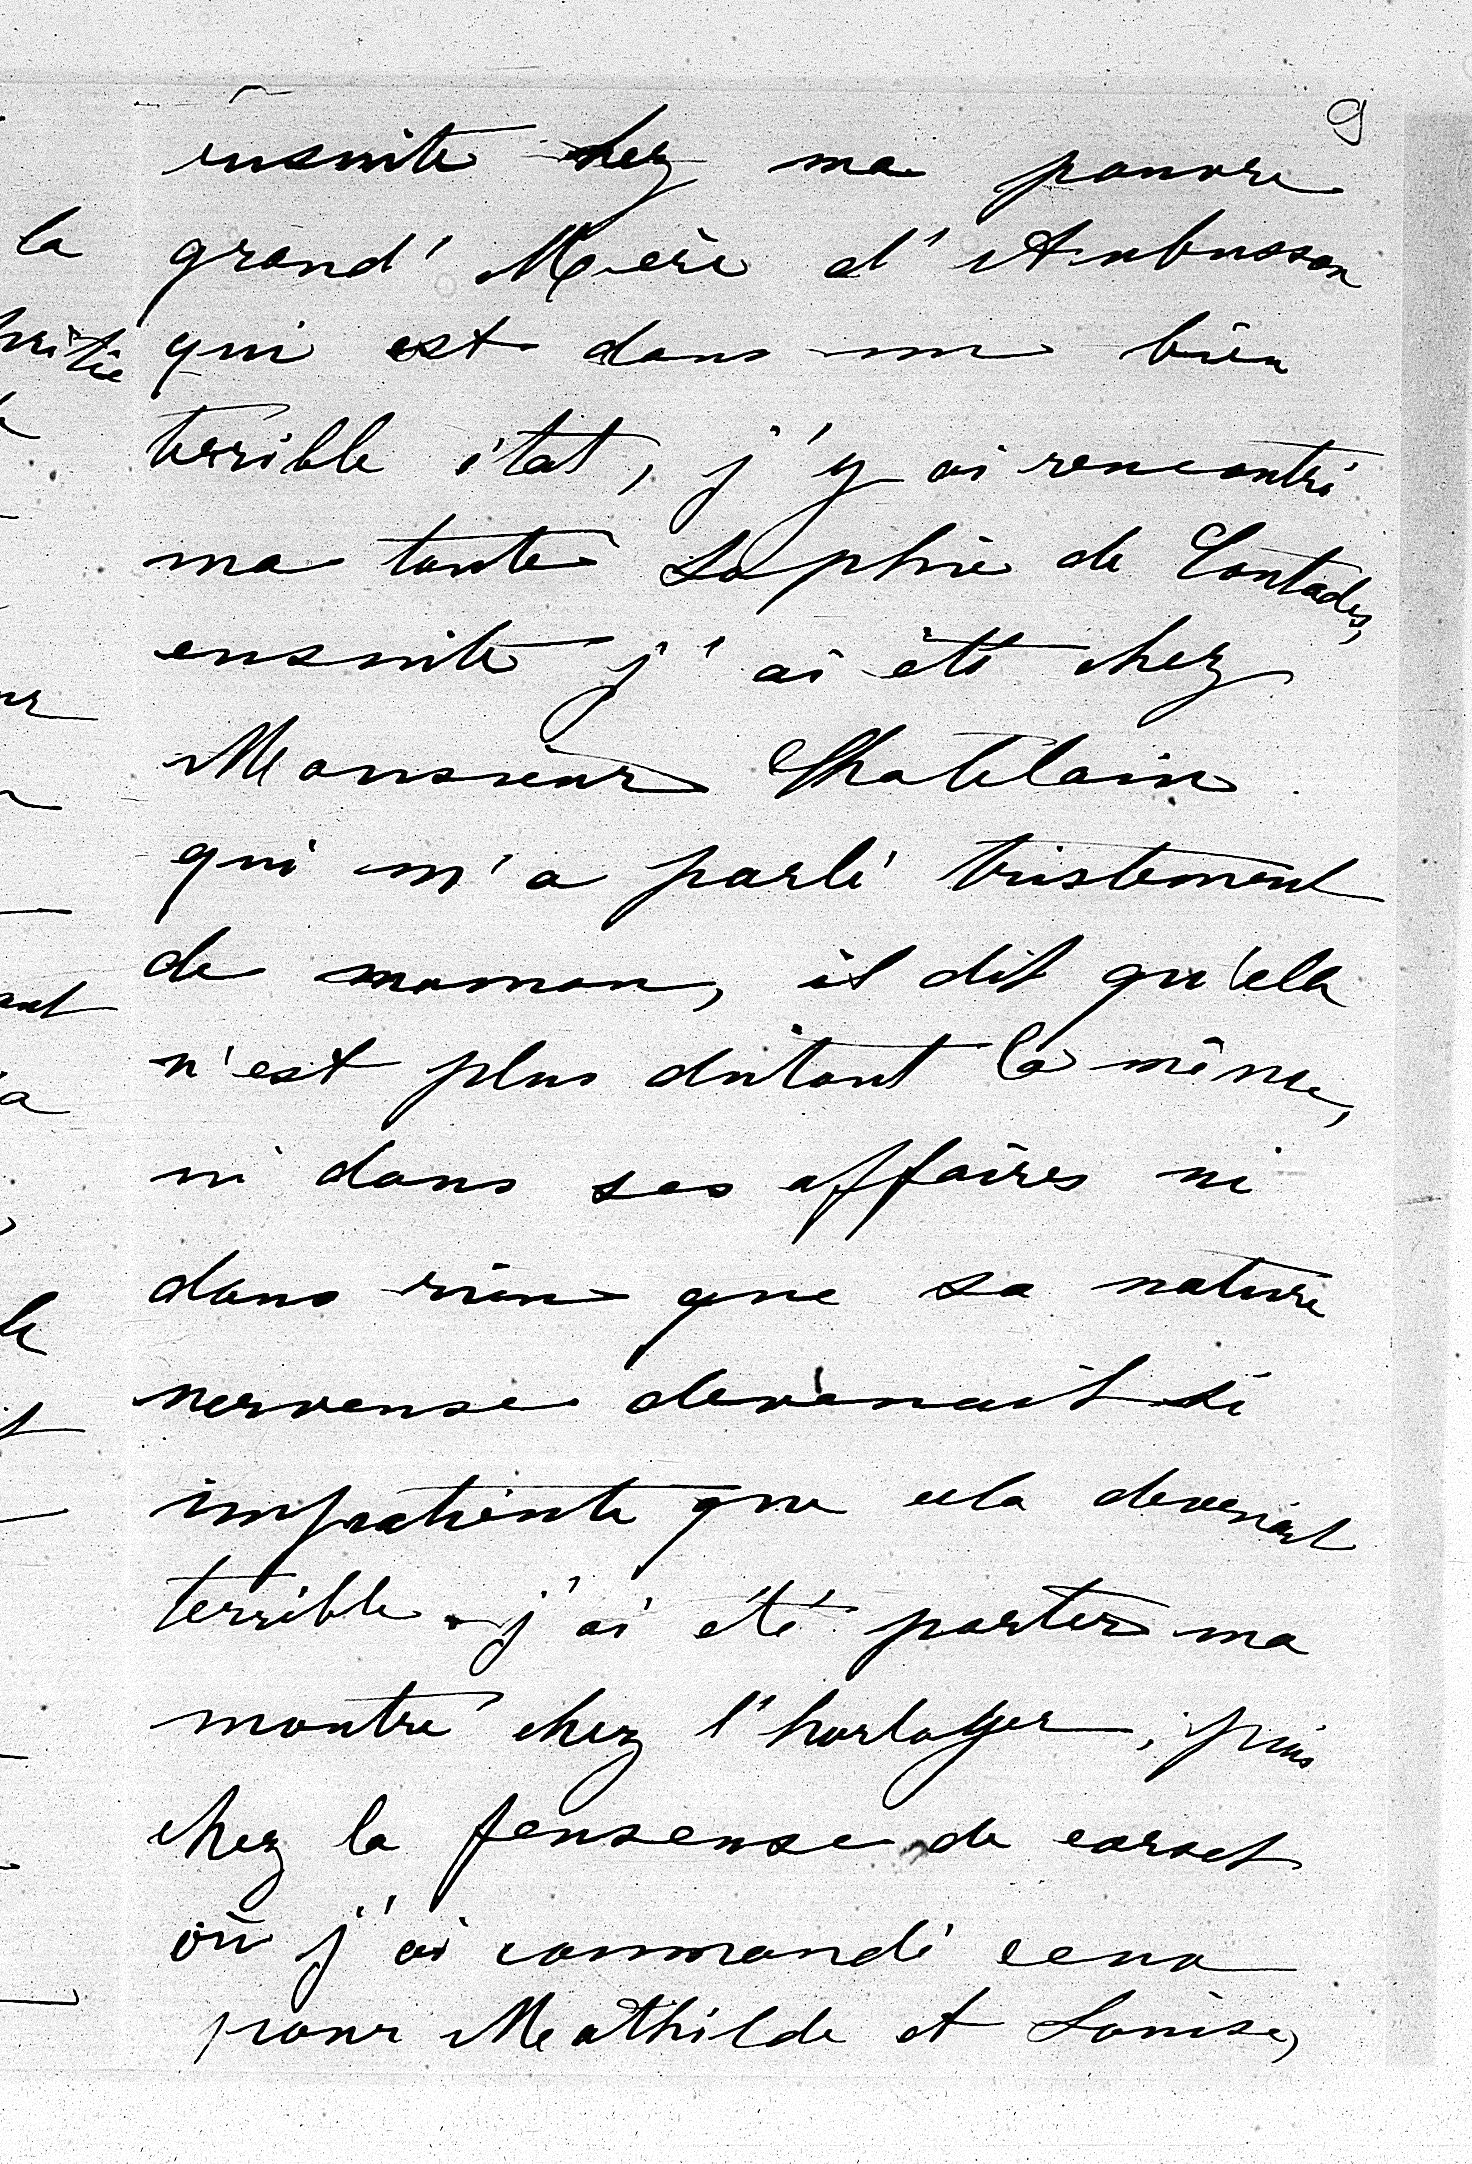 9
ensuite chez ma pauvre
grand' Mère d'Aubusson
qui est dans un bien
terrible état, j'y ai rencontré
ma tante Sophie de Contades,
ensuite j'ai été chez
Monsieur Chatelain
qui m'a parlé tristement
de maman, il dit qu'ela
n'est plus dutout la même,
ni dans ses affaires ni
dans rien que sa nature
nerveuse devenait si
impatiente que cela devenait
terrible. j'ai été porter ma
montre chez l'horloger, puis
chez la fenseuse de corset
où j'ai commandé ceux
pour Mathilde et Louise,